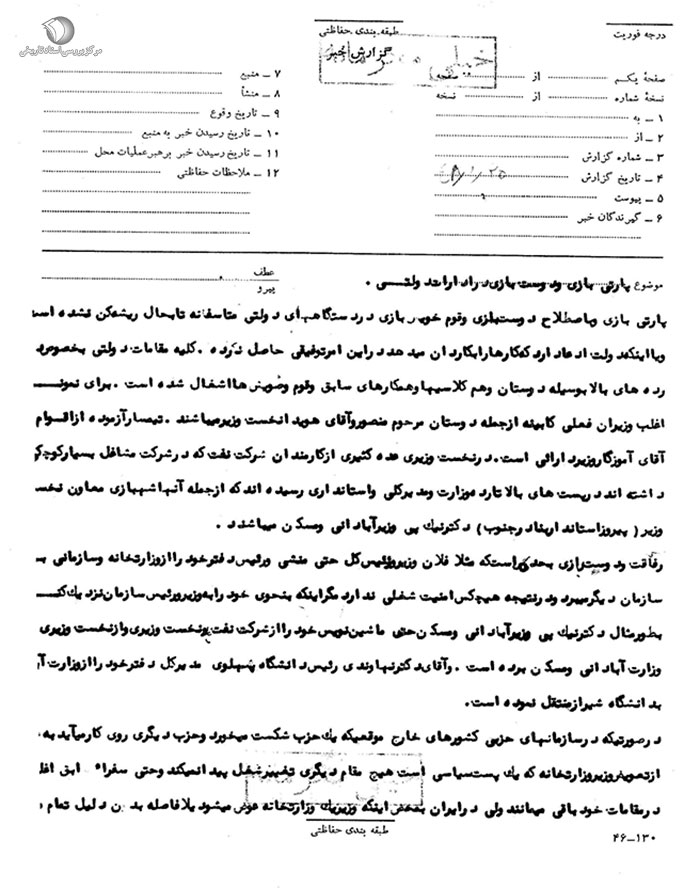 مرکز بررسی اسناد تاریخی
درجه فوریت
طبقه بندی حفاظتی
گزارش خبر
صفحهٔ یکم از صفحه
نسخهٔ شماره از نسخه
۱ ـ به
۲ ـ از
۳ ـ شماره گزارش
۴ ـ تاریخ گزارش
۵ ـ پیوست
۶ ـ گیرندگان خبر
۷ ـ منبع
۸ ـ منشأ
۹ ـ تاریخ وقوع
۱۰ ـ تاریخ رسیدن خبر به منبع
۱۱ ـ تاریخ رسیدن خبر برهبر عملیات محل
۱۲ ـ ملاحظات حفاظتی
موضوع پارتی بازی ودوست بازی در ادارات دولتی .
عطف
پیرو
پارتی بازی وباصطلاح دوست بازی وقوم خویش بازی در دستگاههای دولتی متاسفانه تابحال ریشه کن نشده است
وبااینکه دولت ادعا دارد که کارها رابکاردان میدهد در این امر توفیقی حاصل نکرده . کلیه مقامات دولتی بخصوص در
رده های بالا بوسیله دوستان وهم کلاسیها وهمکارهای سابق وقوم وخویش ها اشغال شده است . برای نمونه
اغلب وزیران فعلی کابینه ازجمله دوستان مرحوم منصور وآقای هویدا نخست وزیر میباشند . تیمسار آزموده از اقوام
آقای آموزگار وزیر دارائی است. در نخست وزیری عده کثیری از کارمندان شرکت نفت که در شرکت مشاغل بسیار کوچکی
داشته اند در پست های بالا تا رده وزارت ومدیرکلی واستانداری رسیده اند که ازجمله آنها شهبازی معاون نخست
وزیر ( پیروز استاندار بنادر جنوب ) دکتر نیک پی وزیر آبادانی ومسکن میباشند .
رفاقت ودوست بازی بحدی است که مثلا فلان وزیر ورئیس کل حتی منشی ورئیس دفتر خود را از وزارتخانه وسازمانی به
سازمان دیگر میبرد ودر نتیجه هیچ کس امنیت شغلی ندارد مگر اینکه بنحوی خود را به وزیر ورئیس سازمان نزدیک کند
بطور مثال دکتر نیک پی وزیر آبادانی ومسکن حتی ماشین نویس خود را از شرکت نفت به نخست وزیری واز نخست وزیری
وزارت آبادانی ومسکن برده است . وآقای دکتر نهاوندی رئیس دانشگاه پهلوی مدیرکل دفتر خود را از وزارت
بدانشگاه شیراز منتقل نموده است.
درصورتیکه در سازمانهای حزبی کشورهای خارج موقعیکه یک حزب شکست میخورد وحزب دیگری روی کار میآید به
از تعویض وزیر وزارتخانه که یک پست سیاسی است هیچ مقام دیگری تغییر شغل پیدا نمیکند وحتی سفراء ابق
در مقامات خود باقی میمانند ولی در ایران بمحض اینکه وزیر یک وزارتخانه عوض میشود بلافاصله بدون دلیل تمام
طبقه بندی حفاظتی
۴۶-۱۳۰